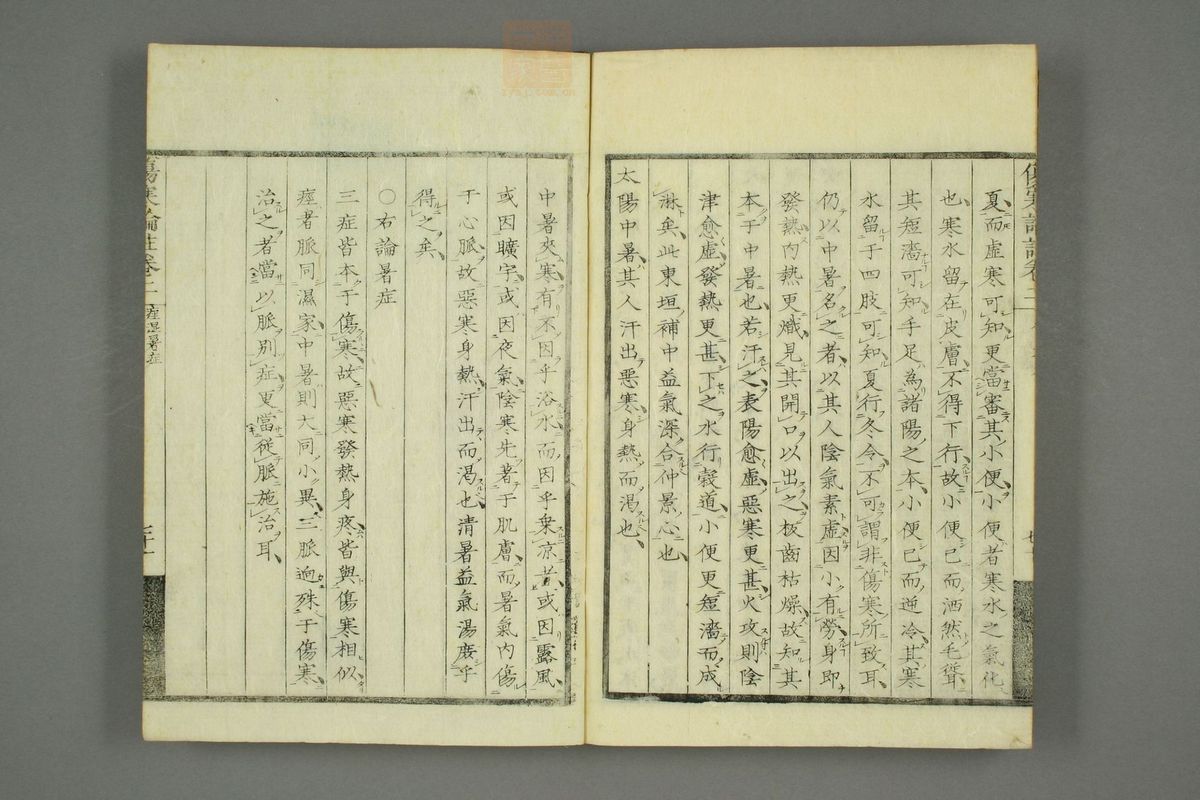 夏而虛寒可知更當審其小便小便者寒水之氣化
也寒水留在皮膚不得下行故小便已而洒然毛聳
其短濇可知手足為諸陽之本小便已而逆冷其寒
水留于四肢可知夏行冬令不可謂非傷寒所致耳
仍以中暑名之者以其人陰氣素虛因小有勞身即
發熱內熱更熾見其開口以出之板齒枯燥故知其
本于中暑也若汗之表陽愈虛惡寒更甚火攻則陰
津愈虛發熱更甚下之水行穀道小便更短濇而成
淋矣此東垣補中益氣深合仲景心也
太陽中暑其人汗出惡寒身熱而渴也
中暑夾寒有不因乎浴水而因乎乗凉者或因露風
或因曠宇或因夜氣陰寒先著于肌膚而暑氣內傷
于心脈故惡寒身熱汗出而渴也清暑益氣湯庶乎
得之矣
〇右論暑症
三症皆本于傷寒故惡寒發熱身疼皆與傷寒相似
痙者脈同濕家中暑則大同小異三脈逈殊于傷寒
治之者當以脈別症更當從脈施治耳
傷寒論註卷二
痙湿暑症